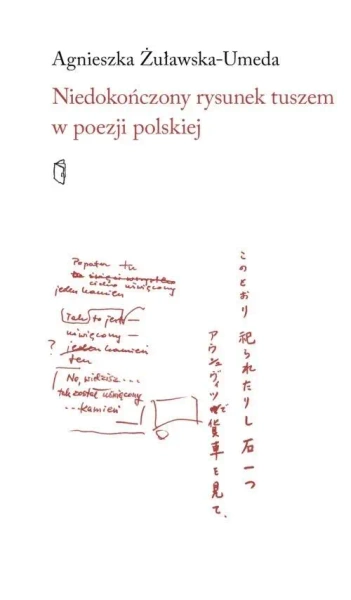 Agnieszka Żuławska-Umeda
Niedokończony rysunek tuszem
w poezji polskiej
Popatrz tu
cicho uświęcony
jeden kamień
(Tak) to jest —
uświęcony —
? jeden kamień
ten
No, widzisz...
tak został uświęcony
... kamień
このとおり 祀られたりし 石一つ
アウシュヴィッツで貨車を見て、